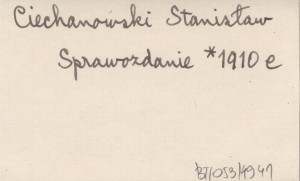 Ciechanowski Stanisław
Sprawozdanie *1910 e
BJ/053/4941